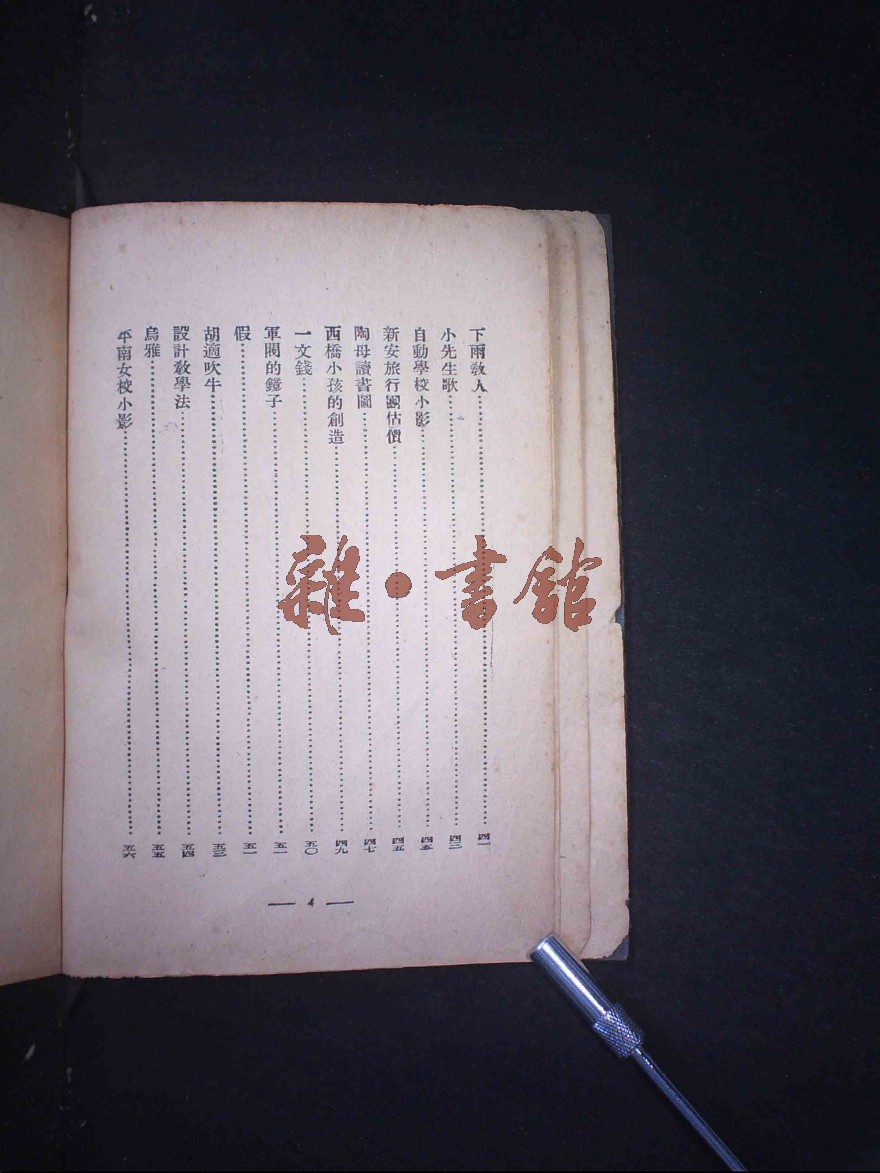 下雨敎人……四一
小先生歌……四三
自動學校小影……四五
新安旅行團估價……四五
陶母讀書圖……四七
西橋小孩的創造……四九
一文錢……五〇
軍閥的鏡子……五一
假……五一
胡適吹牛……五三
設計敎學法……五四
烏雅……五五
平南女校小影……五六
— 4 —
雜·書館